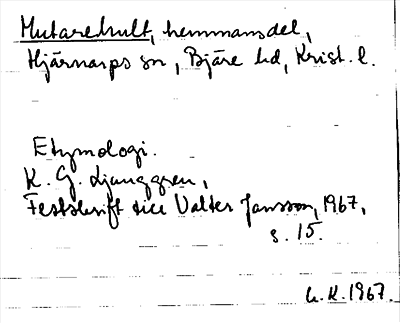 Mutarehult, hemmansdel,
Hjärnarps sn, Bjäre hd, Krist. l.
Etymologi.
K. G. Ljunggren,
Festskrift till Valter Jansson, 1967,
s. 15.
K. 1967.